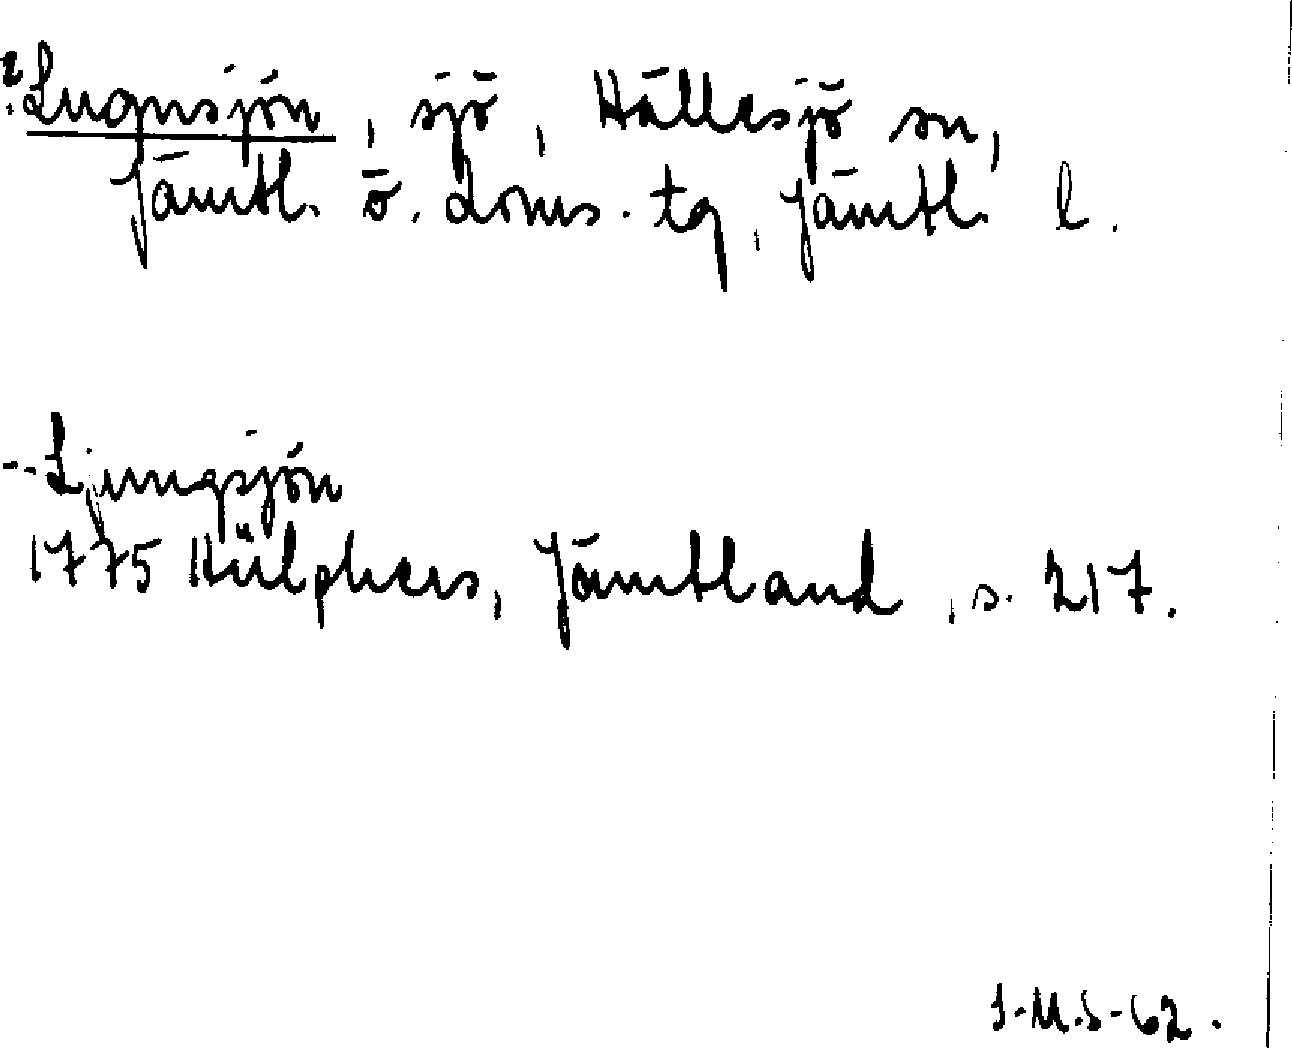 ? Lugnsjön, sjö, Hällesjö sn,
Jämtl. ö. doms. tg, Jämtl. l.
-- Ljungsjön
1775 Hülphers, Jämtland, s. 217.
I-M.S-62.